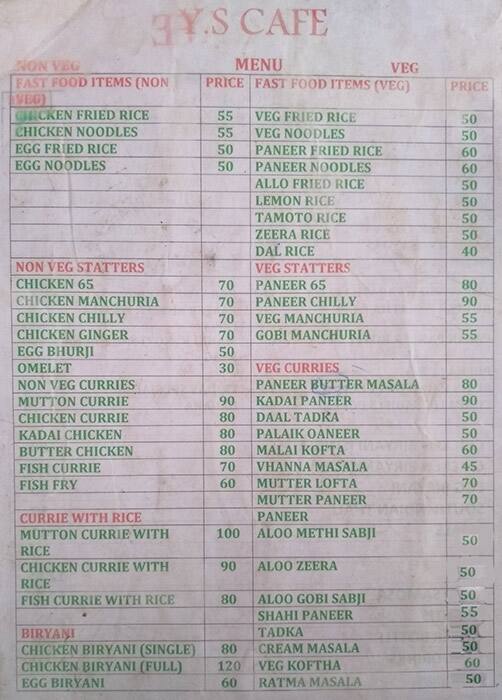 Y.S CAFE
NON VEG MENU VEG
FAST FOOD ITEMS (NON VEG) PRICE FAST FOOD ITEMS (VEG) PRICE
CHICKEN FRIED RICE 55 VEG FRIED RICE 50
CHICKEN NOODLES 55 VEG NOODLES 50
EGG FRIED RICE 50 PANEER FRIED RICE 60
EGG NOODLES 50 PANEER NOODLES 60
ALLO FRIED RICE 50
LEMON RICE 50
TAMOTO RICE 50
ZEERA RICE 50
DAL RICE 40
NON VEG STATTERS VEG STATTERS
CHICKEN 65 70 PANEER 65 80
CHICKEN MANCHURIA 70 PANEER CHILLY 90
CHICKEN CHILLY 70 VEG MANCHURIA 55
CHICKEN GINGER 70 GOBI MANCHURIA 55
EGG BHURJI 50
OMELET 30 VEG CURRIES
NON VEG CURRIES PANEER BUTTER MASALA 80
MUTTON CURRIE 90 KADAI PANEER 90
CHICKEN CURRIE 80 DAAL TADKA 50
KADAI CHICKEN 80 PALAIK OANEER 50
BUTTER CHICKEN 80 MALAI KOFTA 60
FISH CURRIE 70 VHANNA MASALA 45
FISH FRY 60 MUTTER LOFTA 70
MUTTER PANEER 70
CURRIE WITH RICE PANEER
MUTTON CURRIE WITH RICE 100 ALOO METHI SABJI 50
CHICKEN CURRIE WITH RICE 90 ALOO ZEERA 50
FISH CURRIE WITH RICE 80 ALOO GOBI SABJI 50
SHAHI PANEER 55
BIRYANI TADKA 50
CHICKEN BIRYANI (SINGLE) 80 CREAM MASALA 50
CHICKEN BIRYANI (FULL) 120 VEG KOFTHA 60
EGG BIRYANI 60 RATMA MASALA 50